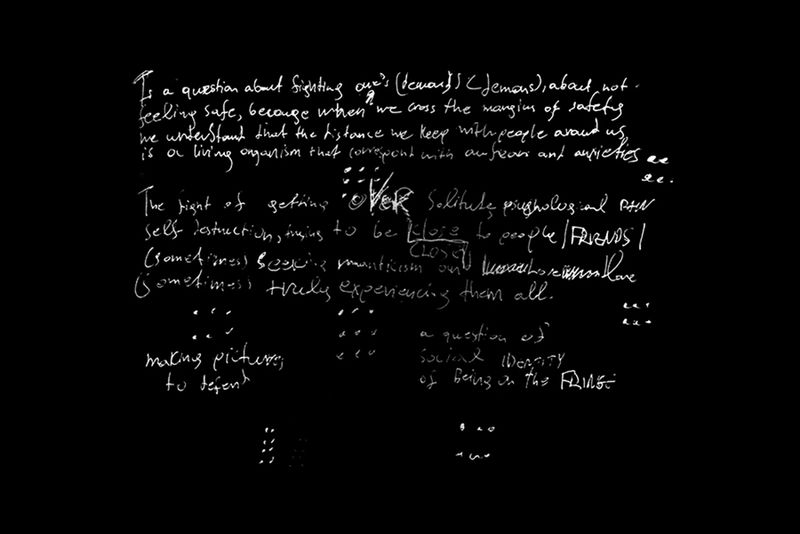 Is a question about fighting one's (demand) (demons), about not
feeling safe, because when we cross the margins of safety
we understand that the distance we keep with people around us
is a living organism that correspond with our fears and anxieties
The fight of getting OVER Solitude psychological PAIN
self destruction, trying to be close to people / FRIENDS /
CLOSER
(sometimes) seeking romanticism or love
(sometimes) truly experiencing them all.
making pictures
to defend
a question of
social IDENTITY
of Being on the FRINGE